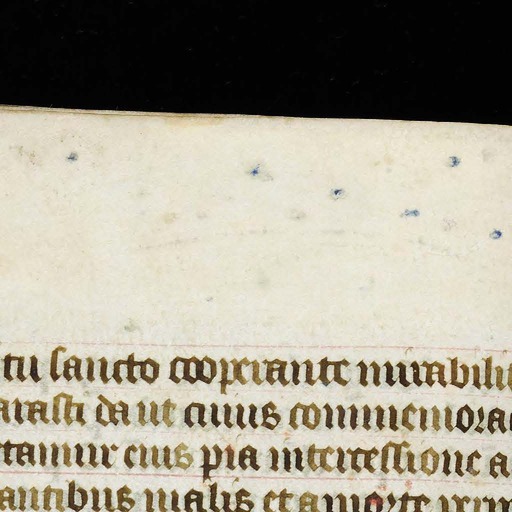 tu sancto cooperante mirabilit
arasti da ut cuius commemorac
tamur eius pia intercessione a
antibus malis et a morte